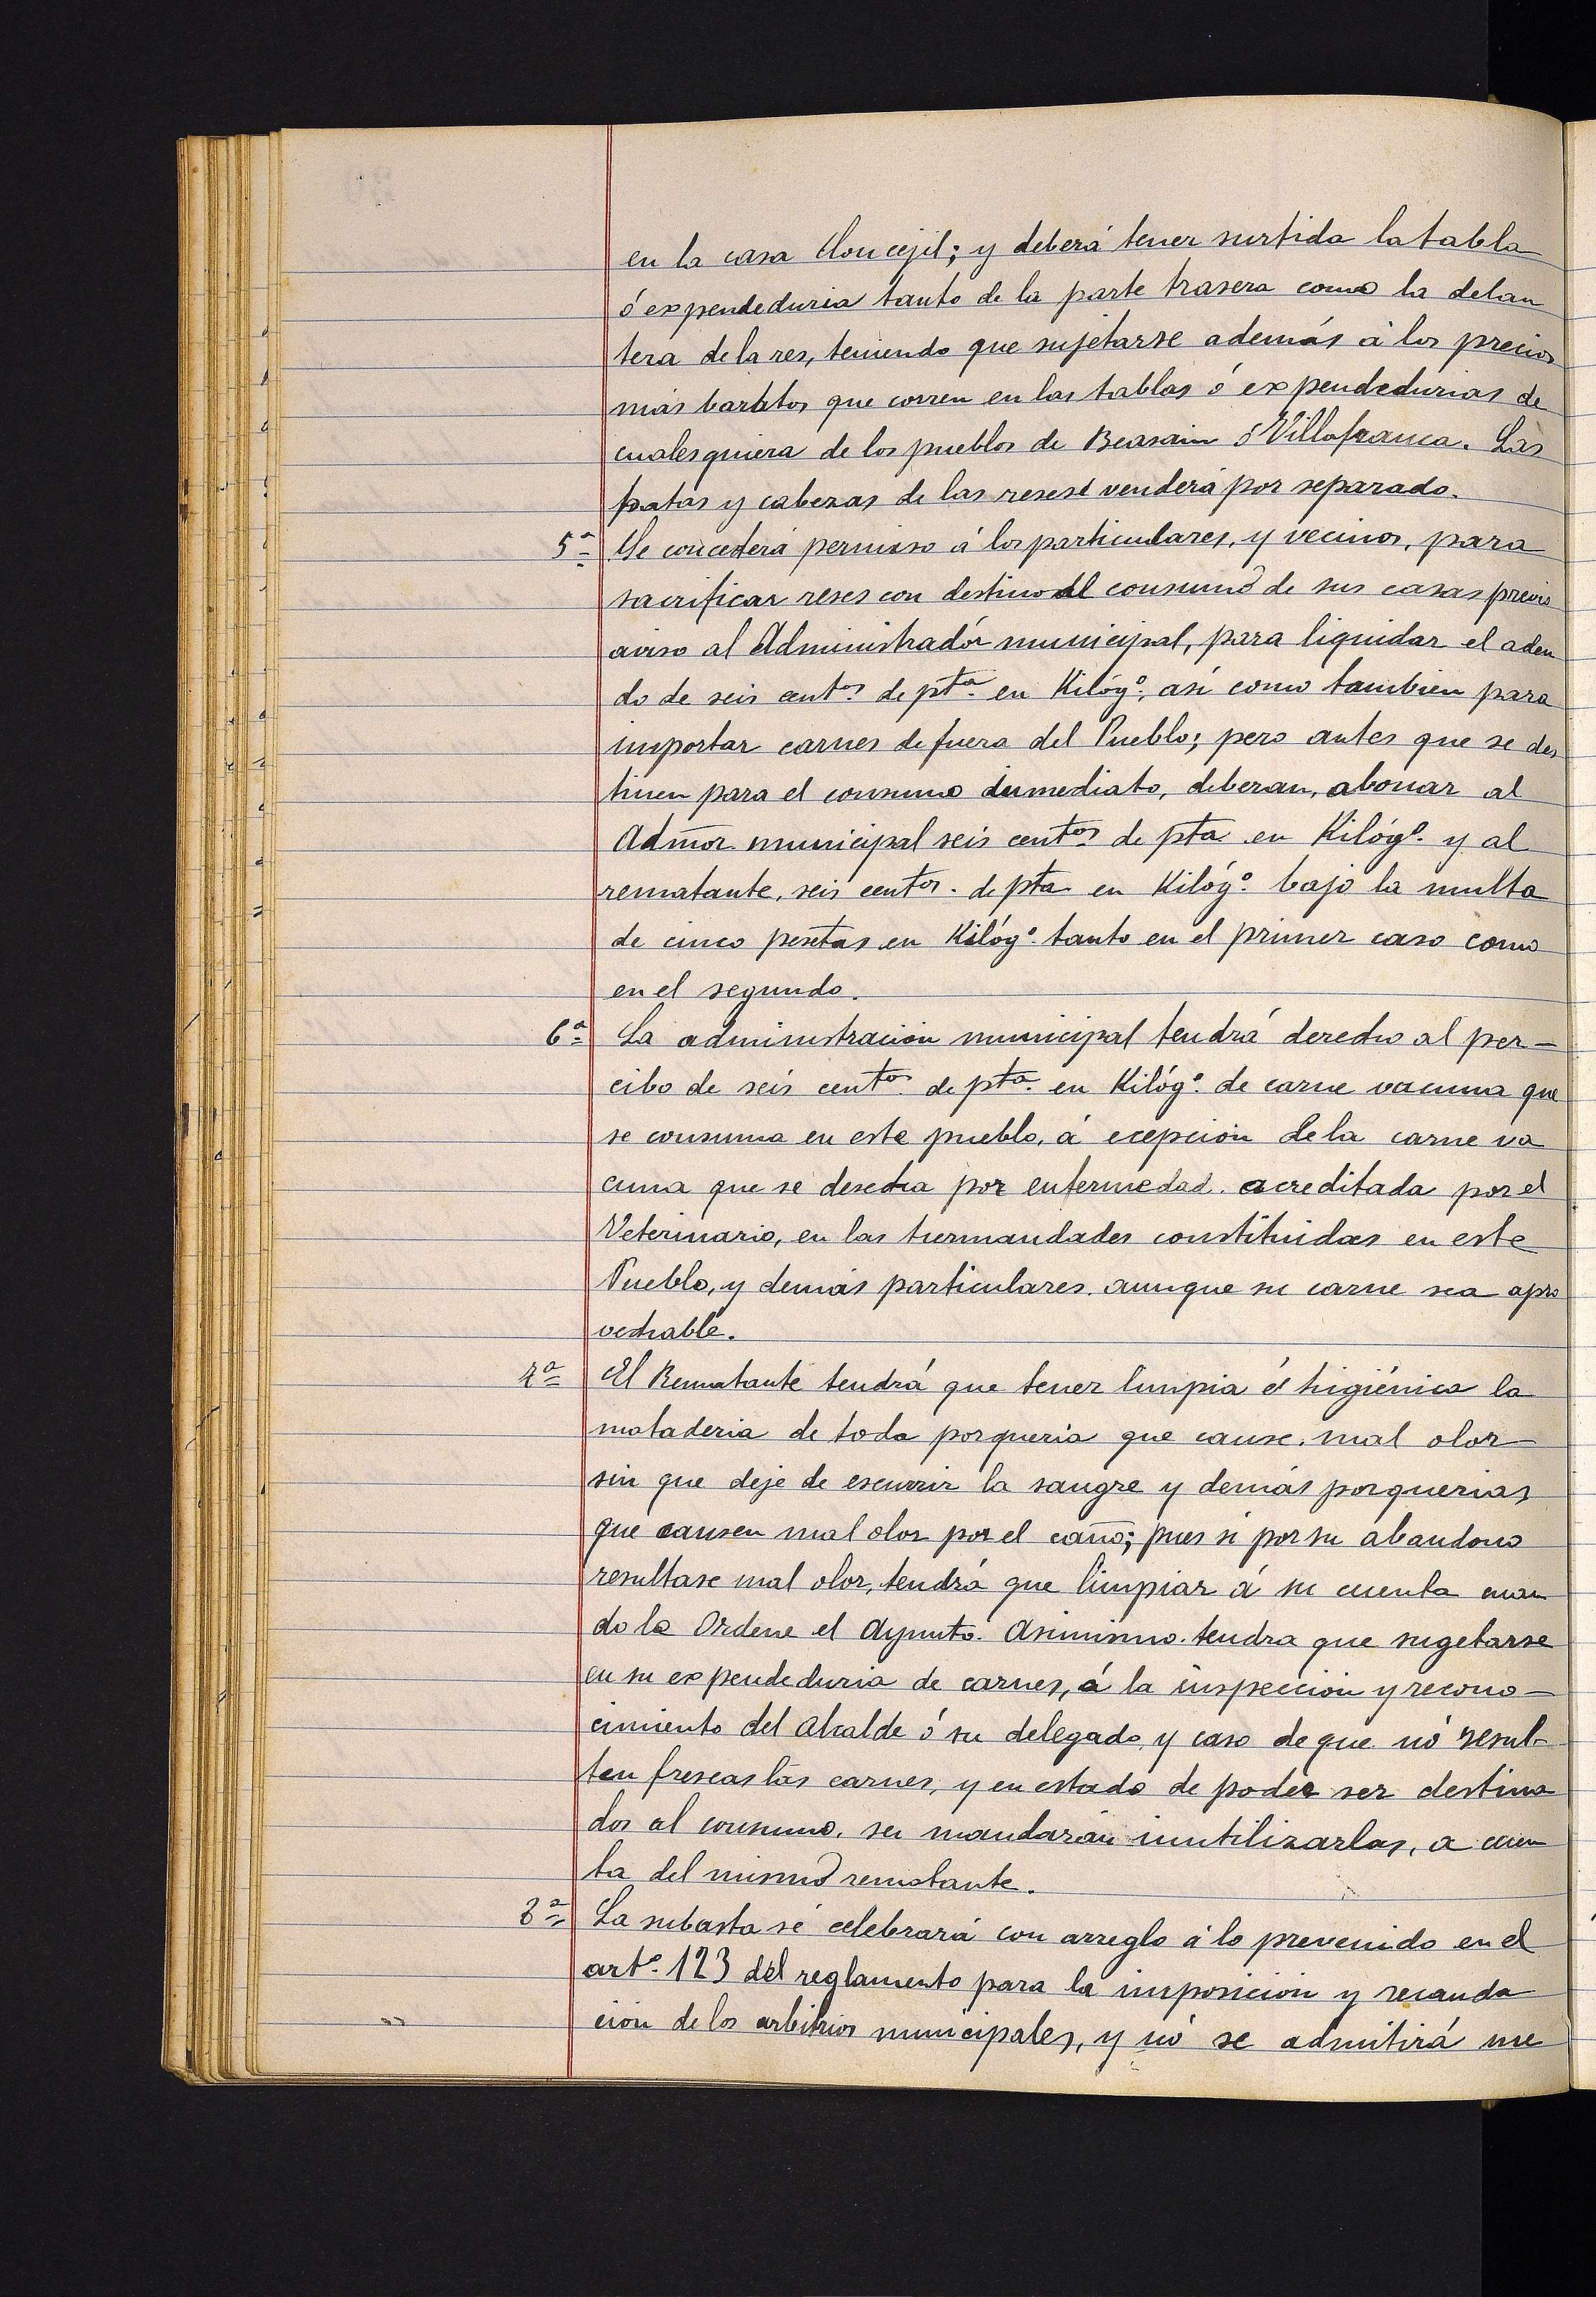 en la casa Concejil; y deberá tener surtida la tabla
ó expendeduria tanto de la parte trasera como la delan
tera de la res, teniendo que sujetarse además á los precios
más baratos que corren en las tablas ó expendedurias de
cualesquiera de los pueblos de Beasain ó Villafranca. Las
patas y cabezas de las reses venderá por separado.
5ª Se concederá permiso á los particulares, y vecinos, para
sacrificar reses con destino al consumo de sus casas previo
aviso al Administradór municipal, para liquidar el adeu
do de seis centos de pta en Kilógº, asi como tambien para
importar carnes de fuera del Pueblo; pero antes que se des
tinen para el consumo inmediato, deberan, abonar al
Admor municipal seis centos de pta en Kilógº. y al
rematante, seis centos. de pta en Kilógº. bajo la multa
de cinco pesetas en Kilógº. tanto en el primer caso como
en el segundo.
6ª La administración municipal tendrá derecho al per-
cibo de seis centos de pta. en Kilógº. de carne vacuna que
se consuma en este pueblo, á ecepción de la carne va
cuna que se desecha por enfermedad. acreditada por el
Veterinario, en las hermandades constituidas en este
Pueblo, y demás particulares. aunque su carne sea apro
vechable.
7ª El Rematante tendrá que tener limpia é higiénica la
mataderia de toda porqueria que cause. mal olor
sin que deje de escurrir la sangre y demás porquerias
que causen mal olor por el caño; pues si por su abandono
resultase mal olor, tendrá que limpiar á su cuenta cuan
do la Ordene el Ayunto. Asimismo. tendra que sugetarse
en su expendeduria de carnes, á la inspección y recono-
cimiento del Alcalde ó su delegado y caso de que nó resul-
ten frescas las carnes, y en estado de poder ser destina
dos al consumo. se mandarán inutilizarlas, a cuen
ta del mismo rematante.
8ª La subasta se celebrará con arreglo á lo prevenido en el
artº. 123 del reglamento para la imposicion y recauda
ción de los arbitrios municipales, y nó se admitirá me